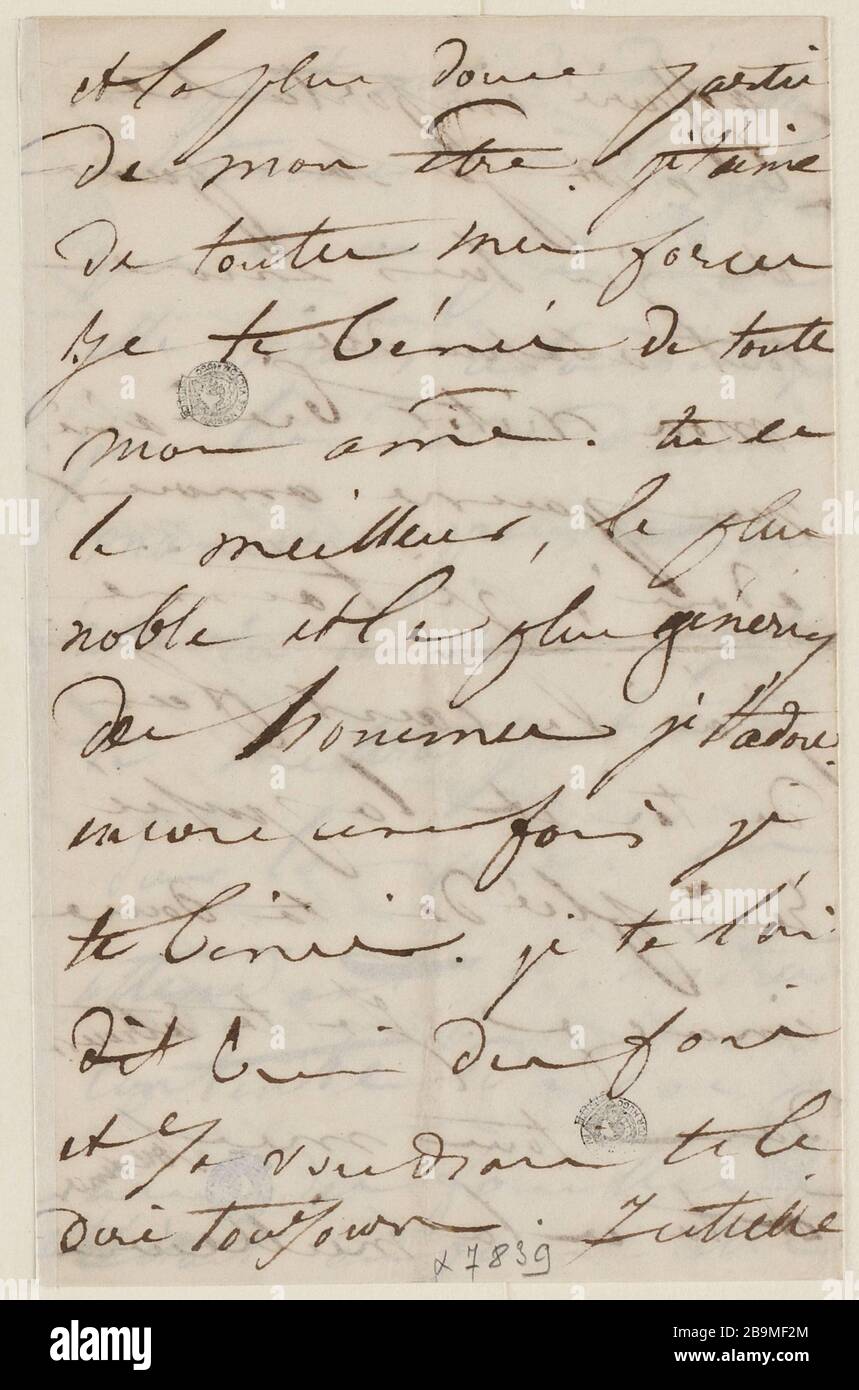 et la plus douce partie
de mon être. je t'aime
de toutes mes forces
je te bénis de toute
mon âme. tu es
le meilleur, le plus
noble et le plus généreux
des hommes je t'adore.
encore une fois je
te bénis. je te l'ai
dit bien des fois
et je voudrais te le
dire toujours. Juliette
α 7839
alamy
Image ID: 2B9MF2M
www.alamy.com